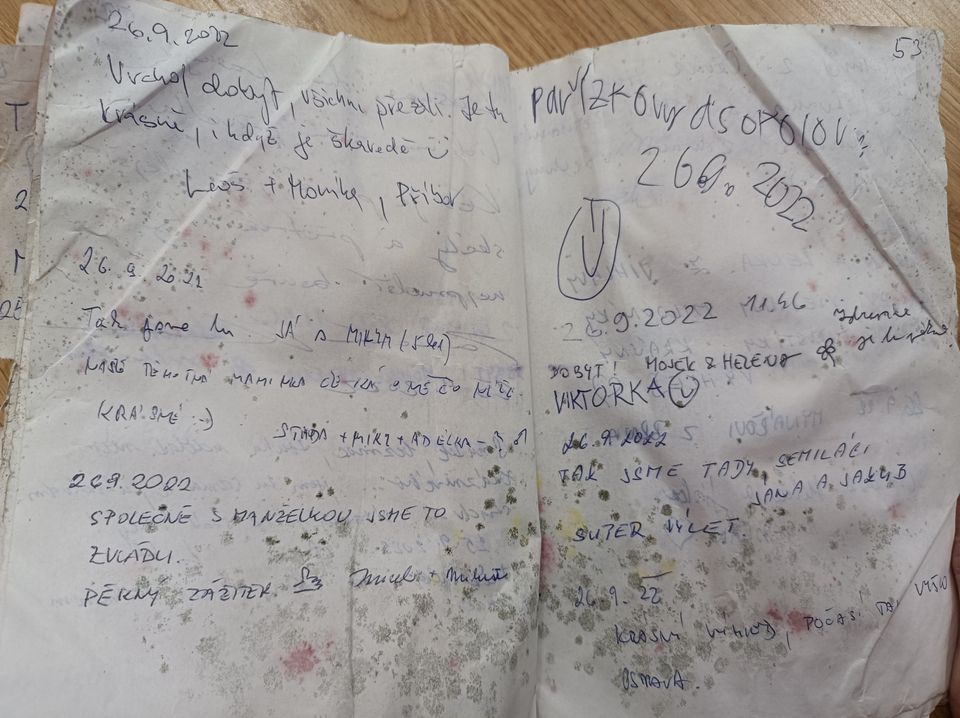 26.9.2022
Vrchol dobyt, všichni přežili. Je tu
krásně, i když je škaredě
Leoš + Monika, Příbor
26. 9. 2022
Tak jsme tu JÁ A MIKI (5 let)
NAŠE TĚHOTNÁ MAMINKA ČEKÁ
KRÁSNÉ :-)
STAŇA + MIKI + ADÉLKA
26.9.2022
SPOLEČNĚ S MANŽELKOU JSME TO
ZVLÁDLI.
PĚKNÝ ZÁŽITEK
53
26.9. 2022
.9.2022 11.46
DOBYT! HOJEK & HELENA
je
VIKTORKA
26.9.2022
TAK JSME TADY, SEMILÁCI
JANA A JAKUB
SUPER VÝLET.
26.9. 22
KRÁSNÝ VÝHLED, POČASÍ TAK VYŠLO
OSTRAVA.